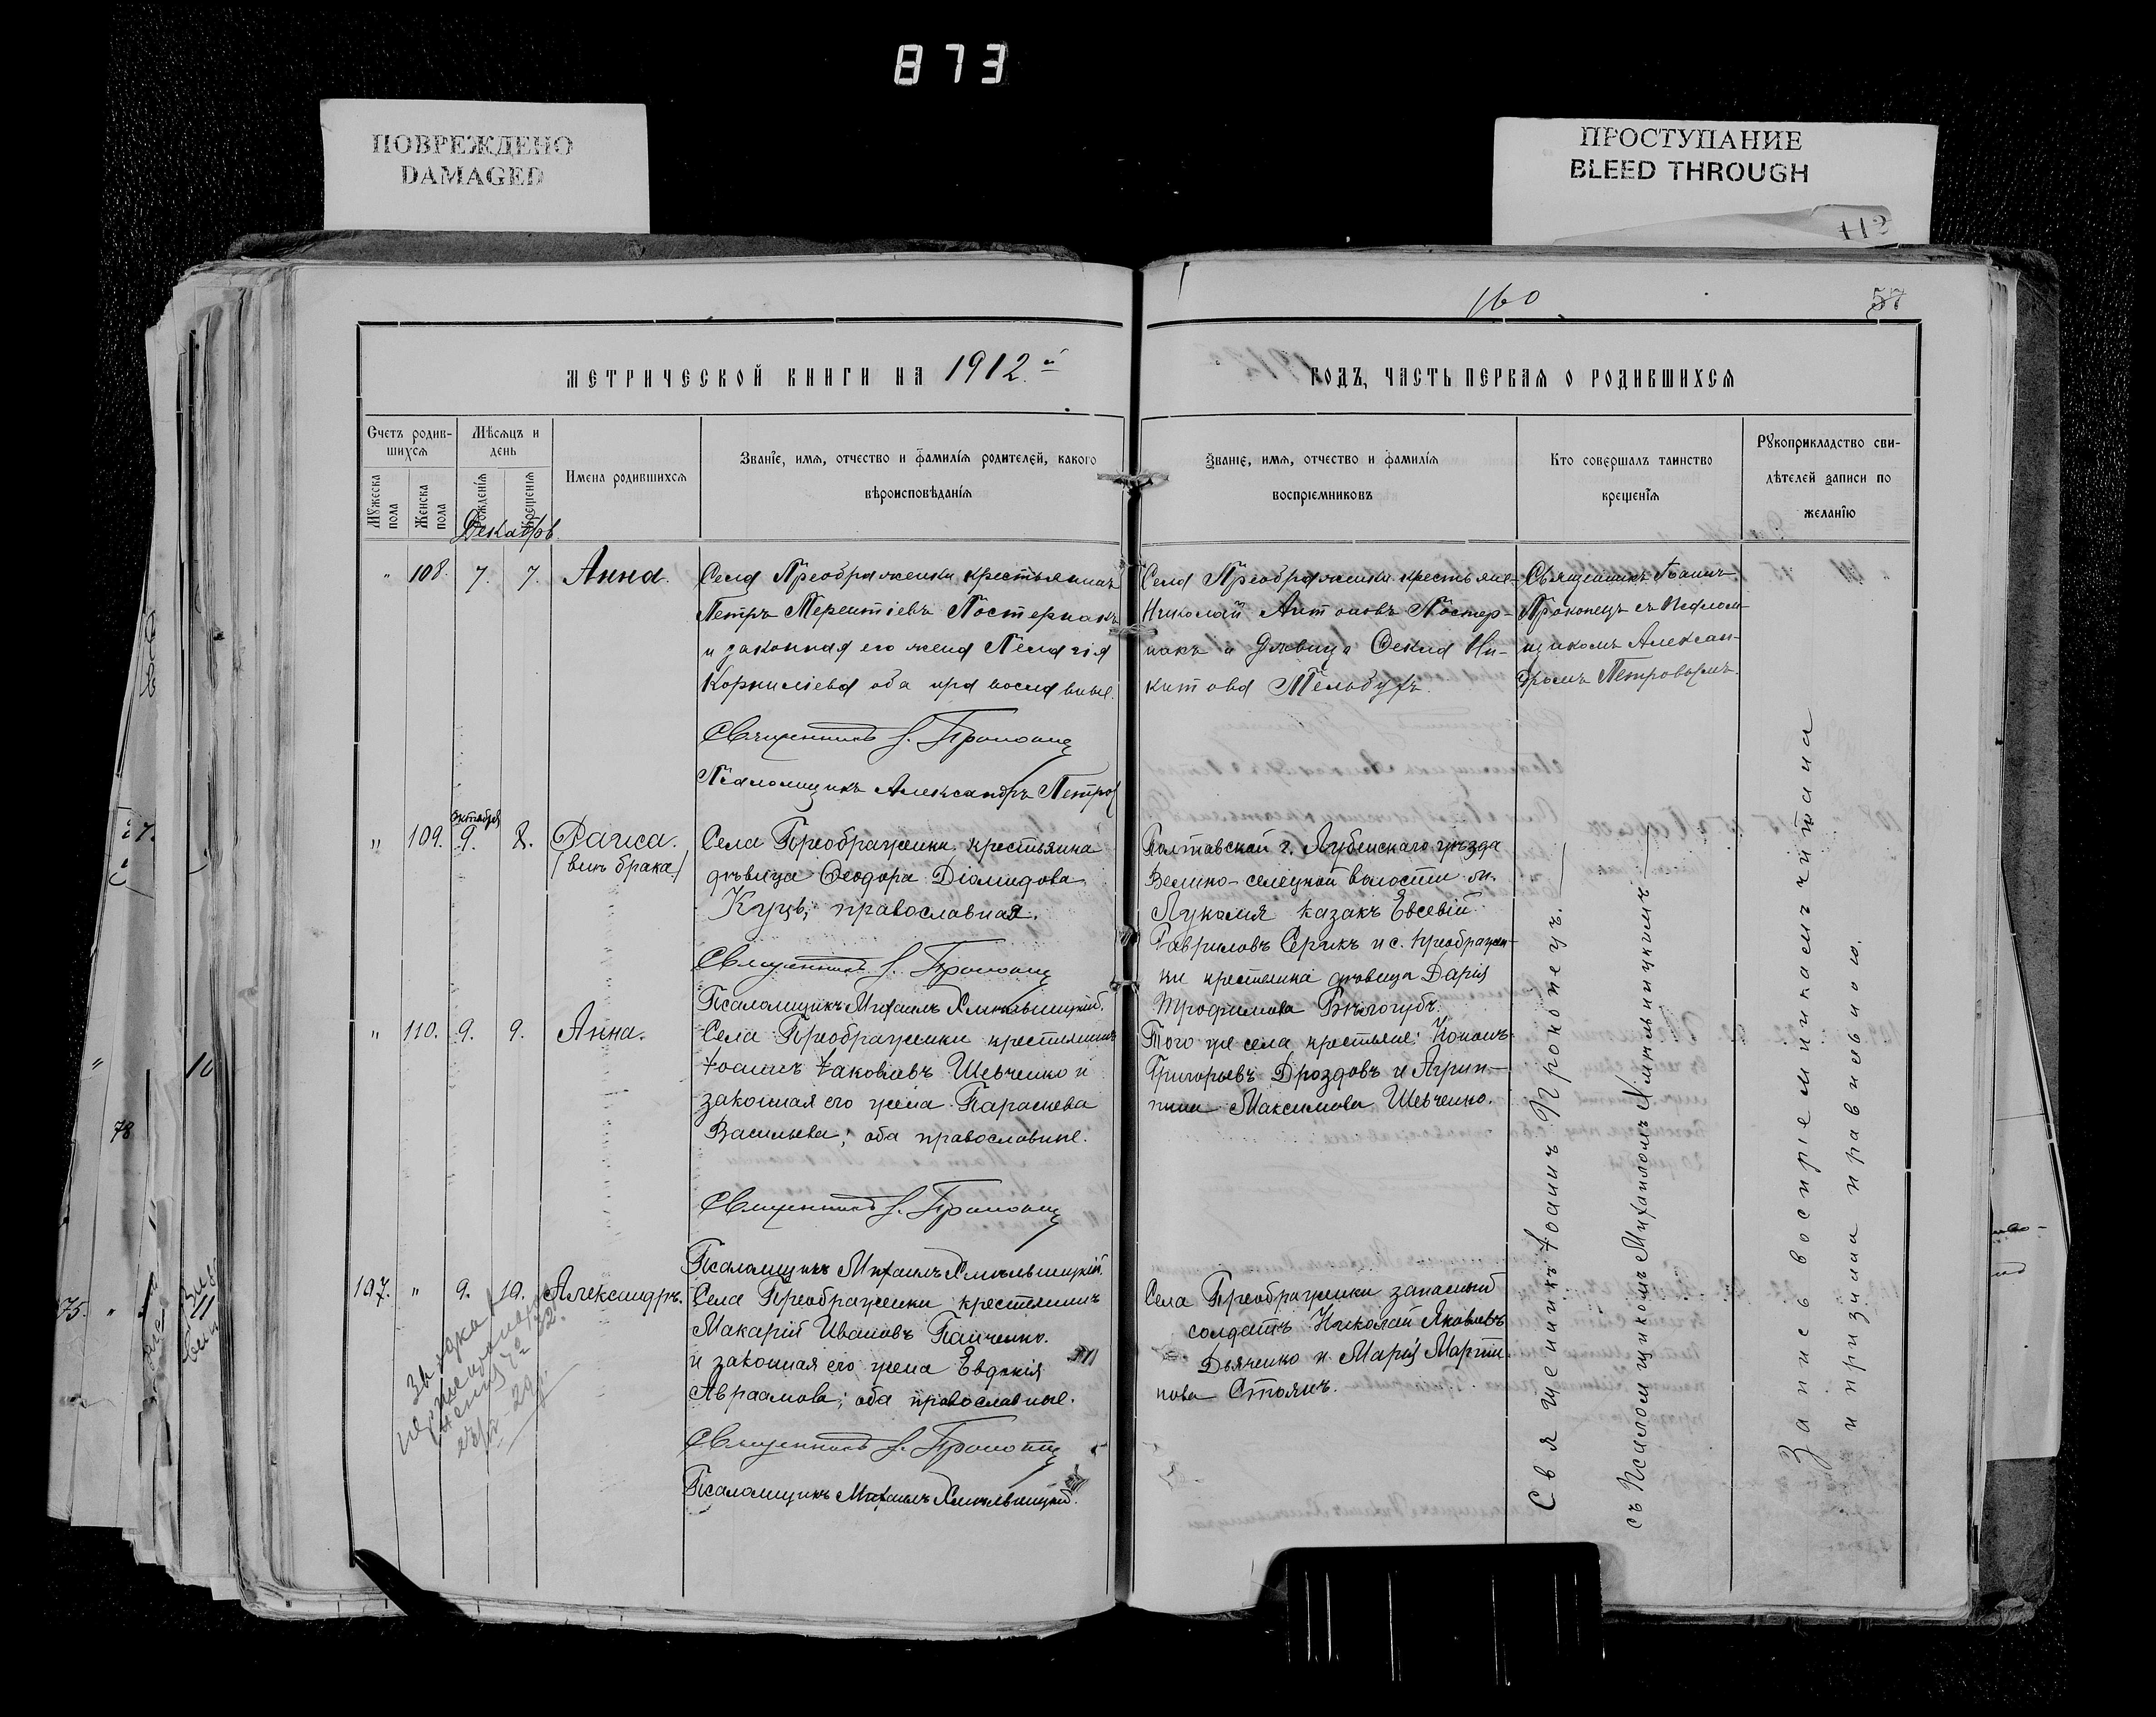 873
ПОВРЕЖДЕНО
DAMAGED
ПРОСТУПАНИЕ
BLEED THROUGH
112
160
57
МЕТРИЧЕСКОЙ КНИГИ НА 1912.й
ГОДЪ, ЧАСТЬ ПЕРВАЯ О РОДИВШИХСЯ
Счетъ родив-
шихся
Мужеска пола
Женска пола
Мѣсяцъ и
день
Рожденія
Крещенія
Имена родившихся
Званіе, имя, отчество и фамилія родителей, какого
вѣроисповѣданія
Званіе, имя, отчество и фамилія
воспріемниковъ
Кто совершалъ таинство
крещенія
Рукоприкладство сви-
дѣтелей записи по
желанію
" 108. 7. 7. Анна.
Села Преображенки крестьянинъ
Петръ Терентіевъ Постернакъ
и законная его жена Пелагія
Корниліева оба православные.
Священникъ І. Прокопецъ
Псаломщикъ Александръ Петров
Села Преображенки крестьяне
Николай Антоновъ Постер-
накъ и дѣвица Ѳекла Ни-
китова
Священникъ Іоаннъ
Прокопецъ съ Псалом-
щикомъ Алексан-
дромъ Петровымъ.
" 109. октября 9. 8. Раиса.
(внѣ брака)
Села Преображенки крестьянка
дѣвица Ѳеодора Діомидова
Куцъ, православная.
Священникъ І. Прокопецъ
Псаломщикъ Михаилъ Хмѣльницкій.
Полтавской г. Лубенскаго уѣзда
Велико-селецкой волости м.
Лукомья казакъ Евсевій
Гавриловъ Серикъ и с. Преображен-
ки крестьянка дѣвица Дарія
Трофимова Бѣлогубъ.
" 110. 9. 9. Анна.
Села Преображенки крестьянинъ
Іоаннъ Іаковлевъ Шевченко и
законная его жена Параскева
Васильева; оба православные.
Священникъ І. Прокопецъ
Псаломщикъ Михаилъ Хмѣльницкій.
Того же села крестьяне: Кононъ
Григорьевъ Дроздовъ и Агрип-
пина Максимова Шевченко.
107. " 9. 10. Александръ.
Села Преображенки крестьянинъ
Макарій Ивановъ Панченко
и законная его жена Евдокія
Авраамова; оба православные.
Священникъ І. Прокопецъ
Псаломщикъ Михаилъ Хмѣльницкій.
Села Преображенки запасный
солдатъ Николай Яковлевъ
Дьяченко и Марія Марти-
нова Стоянъ.
Священникъ Іоаннъ Прокопецъ.
съ Псаломщикомъ Михаиломъ Хмѣльницкимъ
Запись воспріемникамъ читана
и признана правильною.
78
75.